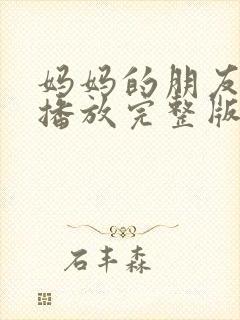 妈妈的朋友
播放完整版
石丰森